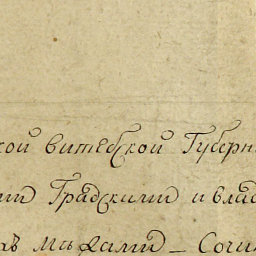 кой витебской Губерн
ми Градскими и влад
хъ мѣрами – Сочин